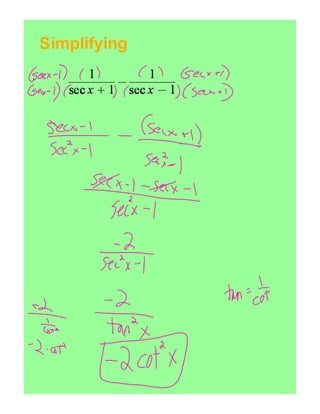 Simplifying
(secx-1) ( 1 ) / (secx-1) (sec x + 1) − ( 1 ) (secx+1) / (sec x − 1) (secx+1)
secx-1 / sec²x-1 − (secx+1) / sec²x-1
secx-1 -secx -1 / sec²x-1
-2 / sec²x-1
tan = 1/cot
-2 / tan²x
-2 / 1/cot²x
-2·cot²
-2cot²x